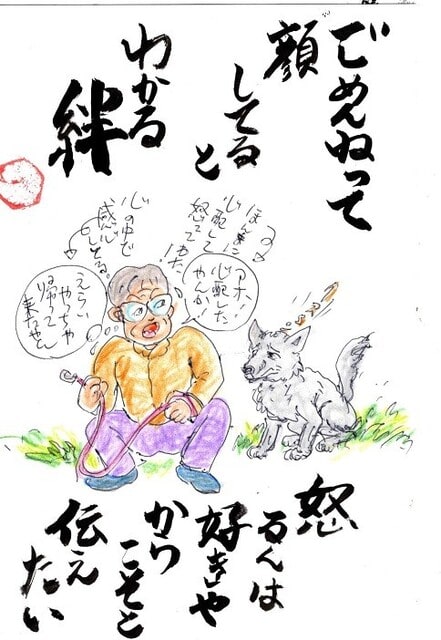 ごめんねって
顔
してると
わかる
絆
ほんまに
心配して
怒ってた!
アホ、
心配した
やんか!
心の中で
感心
してる。
えらい
やっちゃ
帰って
来たやん
怒
るんは
好きや
から
こそと
伝え
たい